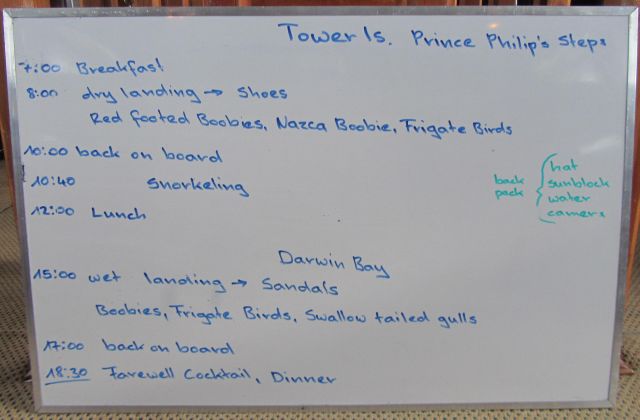 Tower Is. Prince Philip's Steps
7:00 Breakfast
8:00 dry landing → Shoes
Red footed Boobies, Nazca Boobie, Frigate Birds
10:00 back on board
10:40 Snorkeling
12:00 Lunch
back pack { hat
sunblock
water
camera
Darwin Bay
15:00 wet landing → Sandals
Boobies, Frigate Birds, Swallow tailed gulls
17:00 back on board
18:30 Farewell Cocktail, Dinner